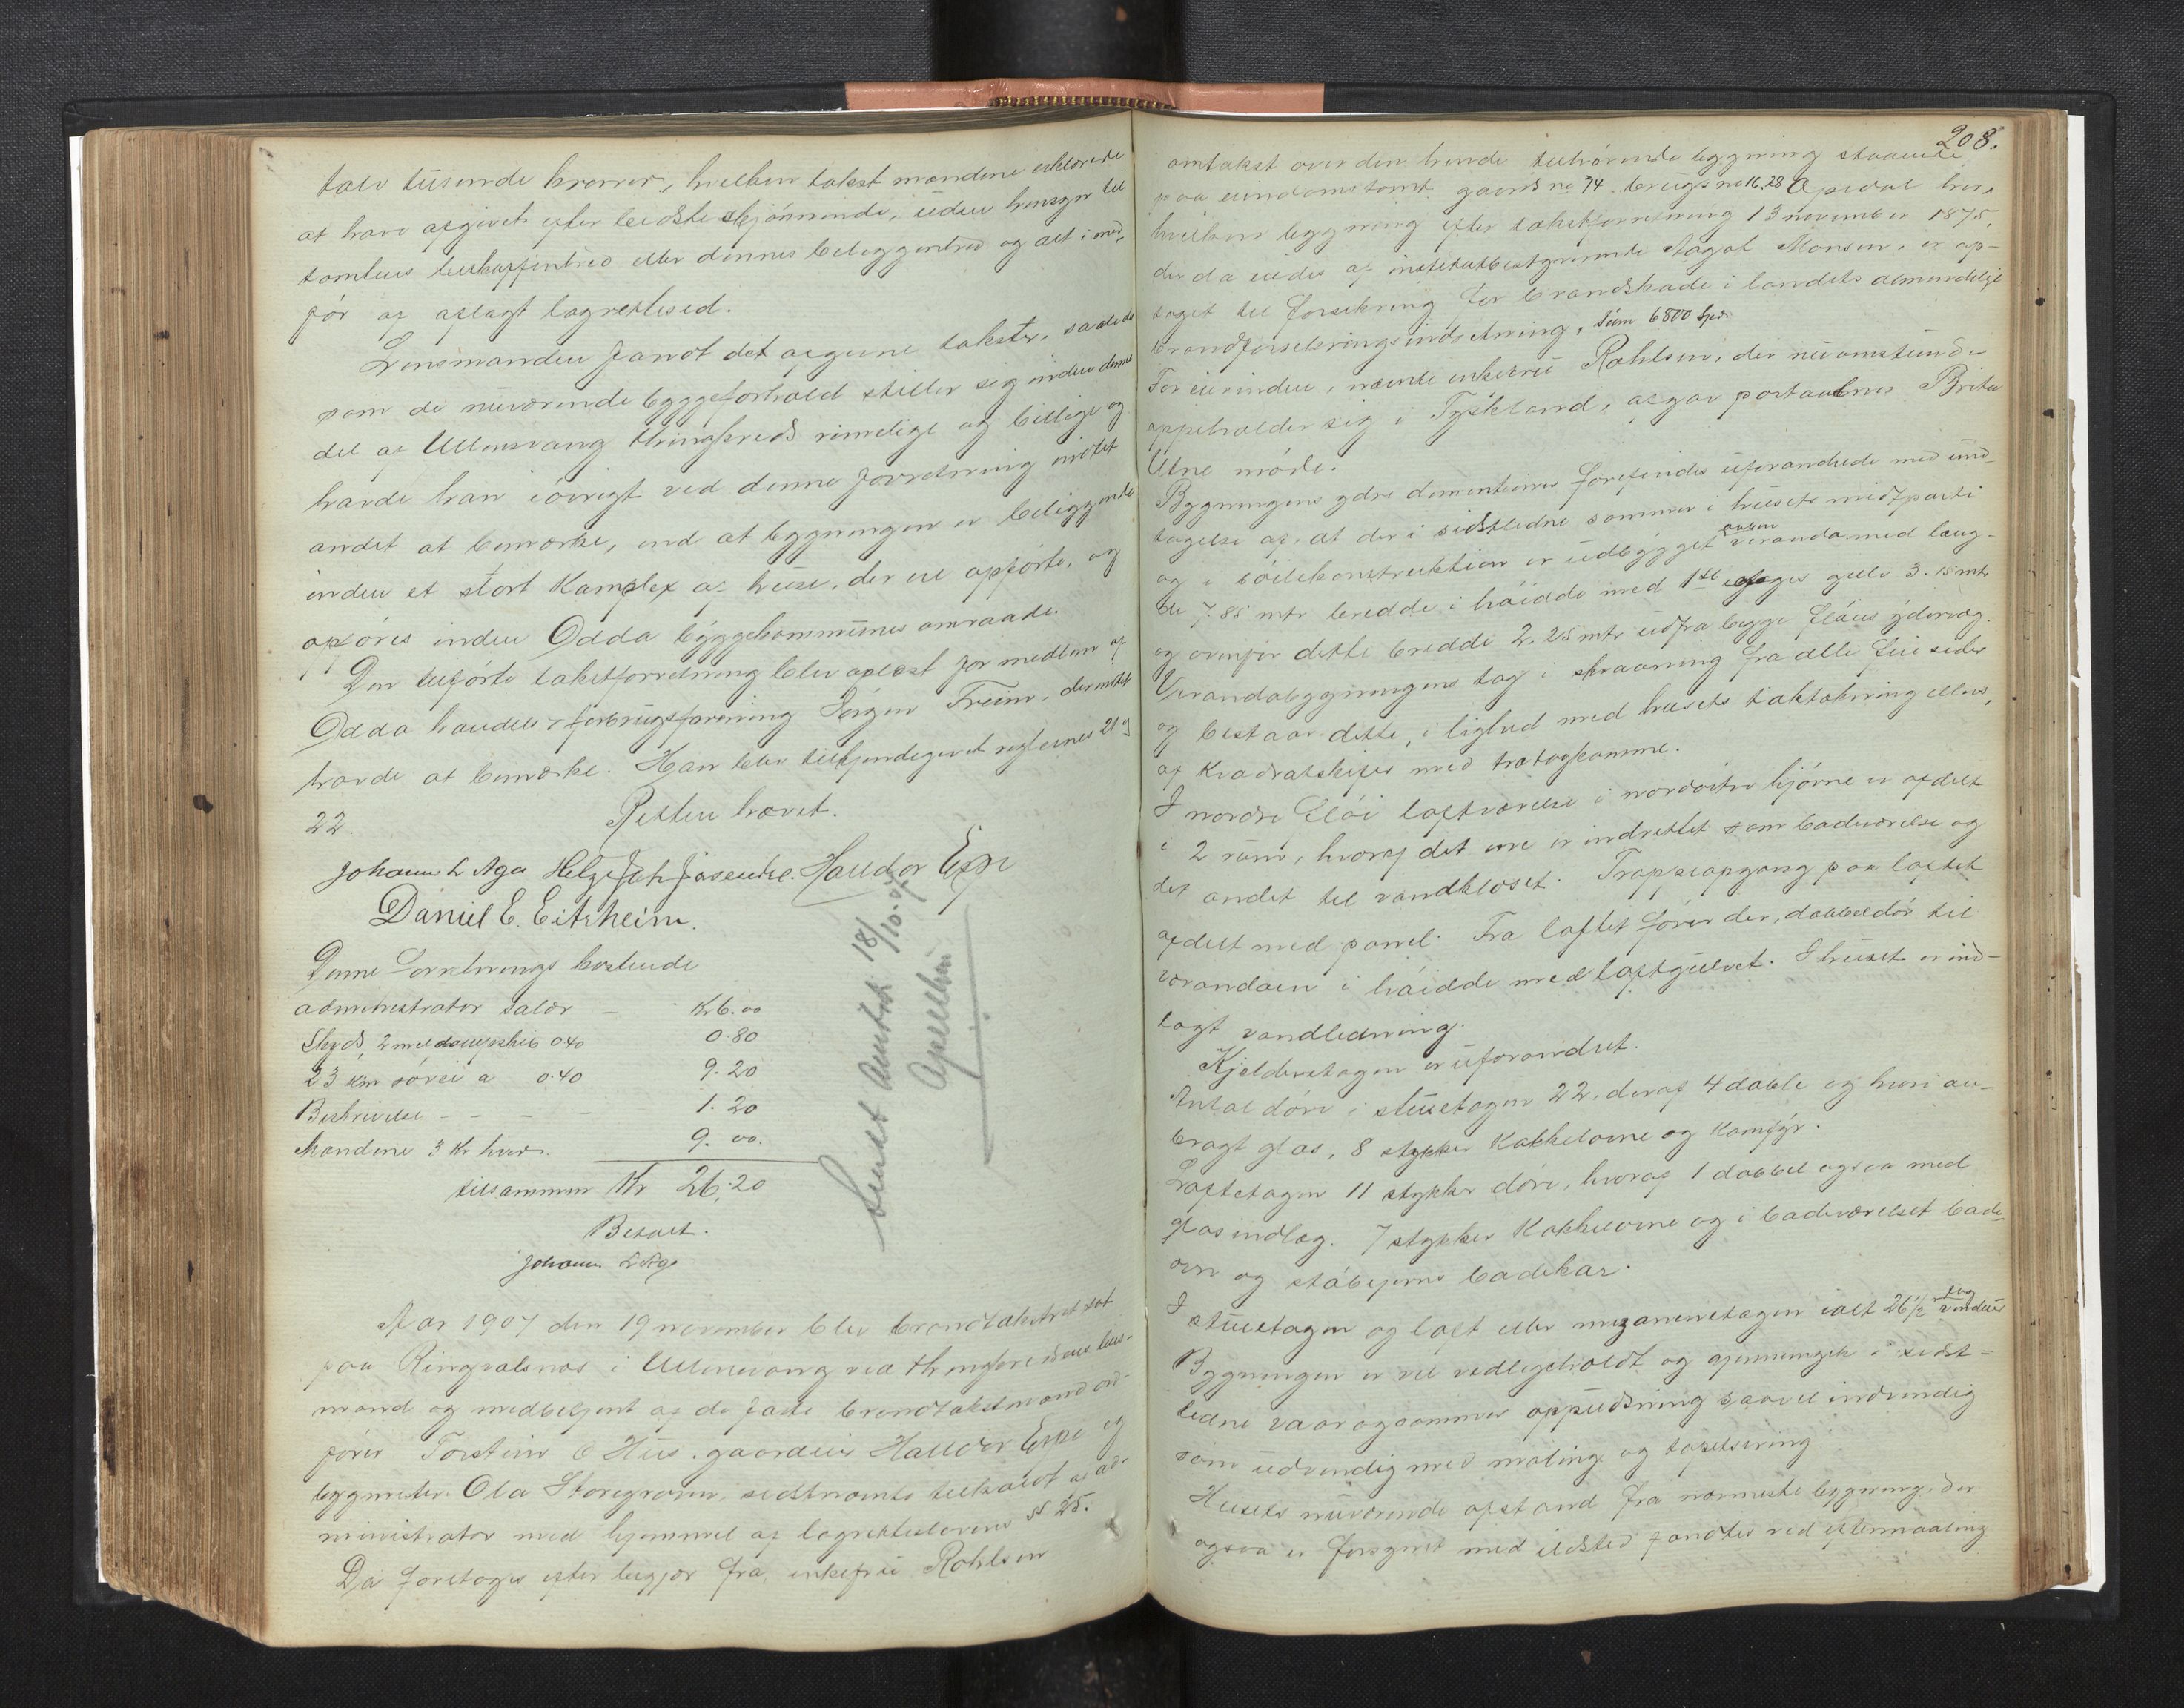 tolv tusende kroner, hvilken takst mændene erklærede
at have afgivet efter bedste skjønnende, uden hensyn til
tomtens beskaffenhed eller dennes beliggenhed og alt i med,
før af aflagt lagrettesed.
Lensmanden fandt det afgivne takster, saaledes
som de nuværende byggeforhold stiller sig inden denne
del af Ullensvang thinglareds rimelige og billige og
havde han iøvrigt ved denne forretning intet
andet at bemærke, end at bygningen er beliggende
inden et stort Komplex af huse, der ere opførte, og
opføres inden Odda bygekommunes omraade.
Den tilførte takstforretning blev oplæst for medlem af
Odda handels & forbrugsforening Jørgen Freim, der intet
havde at bemærke. Han blev tilkjendegivet reglernes 21 og
22. Retten hævet.
Johann L Aga Helge Joh Jøsendal. Halldor Espe
Daniel E. Eitrheim.
Denne Forretnings kostende
administrator salær – Kr 6.00
Skyds, 2 mil dampskib 0.40 0.80
23 km søvei a 0.40 9.20
Beskrivelse - - - - 1.20
Mændene 3 Kr hver. 9.00.
tilsammen Kr 26.20
Betalt.
Johann L Aga
Sendt Amtet 18/10.07
Apselhim
Aar 1907 den 19 november blev brandtakstret sat
paa Ringvalsnæs i Ullensvang ved thinglagredsens lens-
mand og medbetjent af de faste brandtakstmænd ord-
fører Torstein O Hus, gaardeier Halldor Espe og
bygmester Ola Storegraven, sidstnævnte tilkaldt af ad-
ministrator med hjemmel af lagretteslovens § 25.
Da foretoges efter begjær fra enkefru Rohlsen
208.
omtakst over den hende tilhørende bygning staaende
paa eiendomstomt gaards no 74. brugsno 16.28 Apedal her,
hvilken bygning efter takstforretning 13 november 1875,
der da eiedes af institutbestyrerinde Aagot Monsen, er op-
taget til forsikring for brandskade i landets almindelige
brandforsikringsindretning, sum 6800 Spd.
For eierinden, nævnte enkefru Rohlsen, der nuomstunde
oppeholder sig i Tyskland, afgav postaabner Brita
Utne møde.
Bygningens ydre dimentioner forefindes uforandrede med und-
tagelse af, at der i sidstledne sommer i husets midtparti
og i søilekonstruktion er udbygget aaben veranda med læng-
de 7.85 mtr bredde i høidde med 1ste etages gulv 3.15 mtr
og ovenfor dette bredde 2.25 mtr udfra begge fløies ydervæg.
Verandabygningens tag i skraaning fra alle frie sider
og bestaar dette, i lighed med husets taktækning ellers,
af Kvadratskifer med trætagkamme.
I nordre fløi loftværelse i nordøstre hjørne er afdelt
i 2 rum, hvoraf det ene er indrettet som badeværelse og
det andet til vandkloset. Trappeopgang paa loftet
afdelt med panel. Fra loftet fører der, dobbeldør til
verandaen i høidde med loftgulvet. I huset er ind-
lagt vandledning.
Kjelderetagen er uforandret.
Antal døre i stueetagen 22, deraf 4 doble og hvori an-
bragt glas, 8 stykker Kakkelovne og Komfyr.
Loftetagen 11 stykker døre, hvoraf 1 dobbel ogsaa med
glasindlæg. 7 stykker Kakkelovne og i badeværelset bade-
ovn og støbejerns badekar.
I stueetagen og loft eller mezaninetagen ialt 26 1/2 fag vinduer
Bygningen er vel vedligeholdt og gjennemgik i sidst-
ledne vaar og sommer oppudsning saavel indvendig
som udvendig med maling og tapetsering.
Husets nuværende afstand fra nærmeste bygning, der
ogsaa er forsynet med ildsted fandtes ved eftermaaling